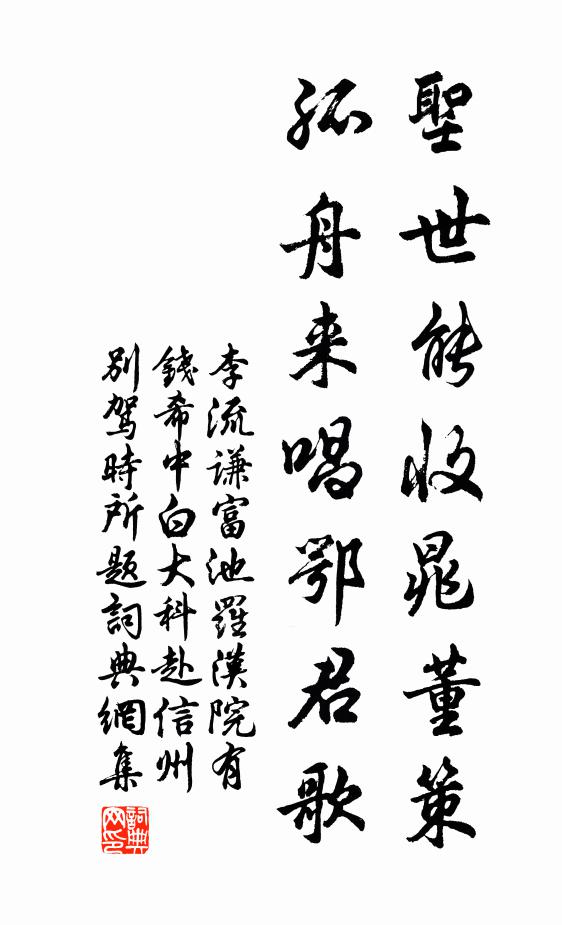 聖世能收晁董策
孤舟来唱鄂君歌
李流謙富池羅漢院有
錢希中白大科赴信州
別駕時所題詞典網集
詞典网印